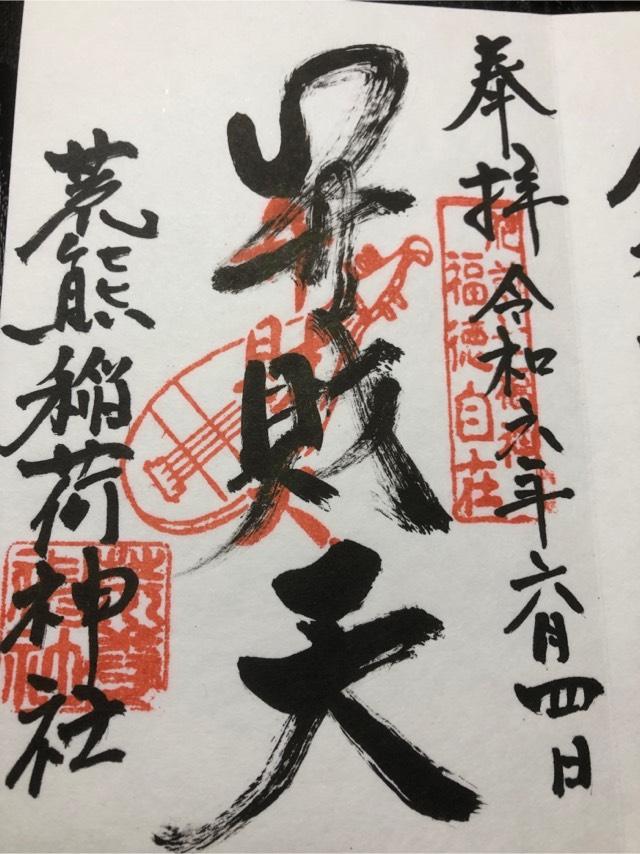 奉拝 令和六年六月四日
福徳自在
弁財天
荒熊稲荷神社